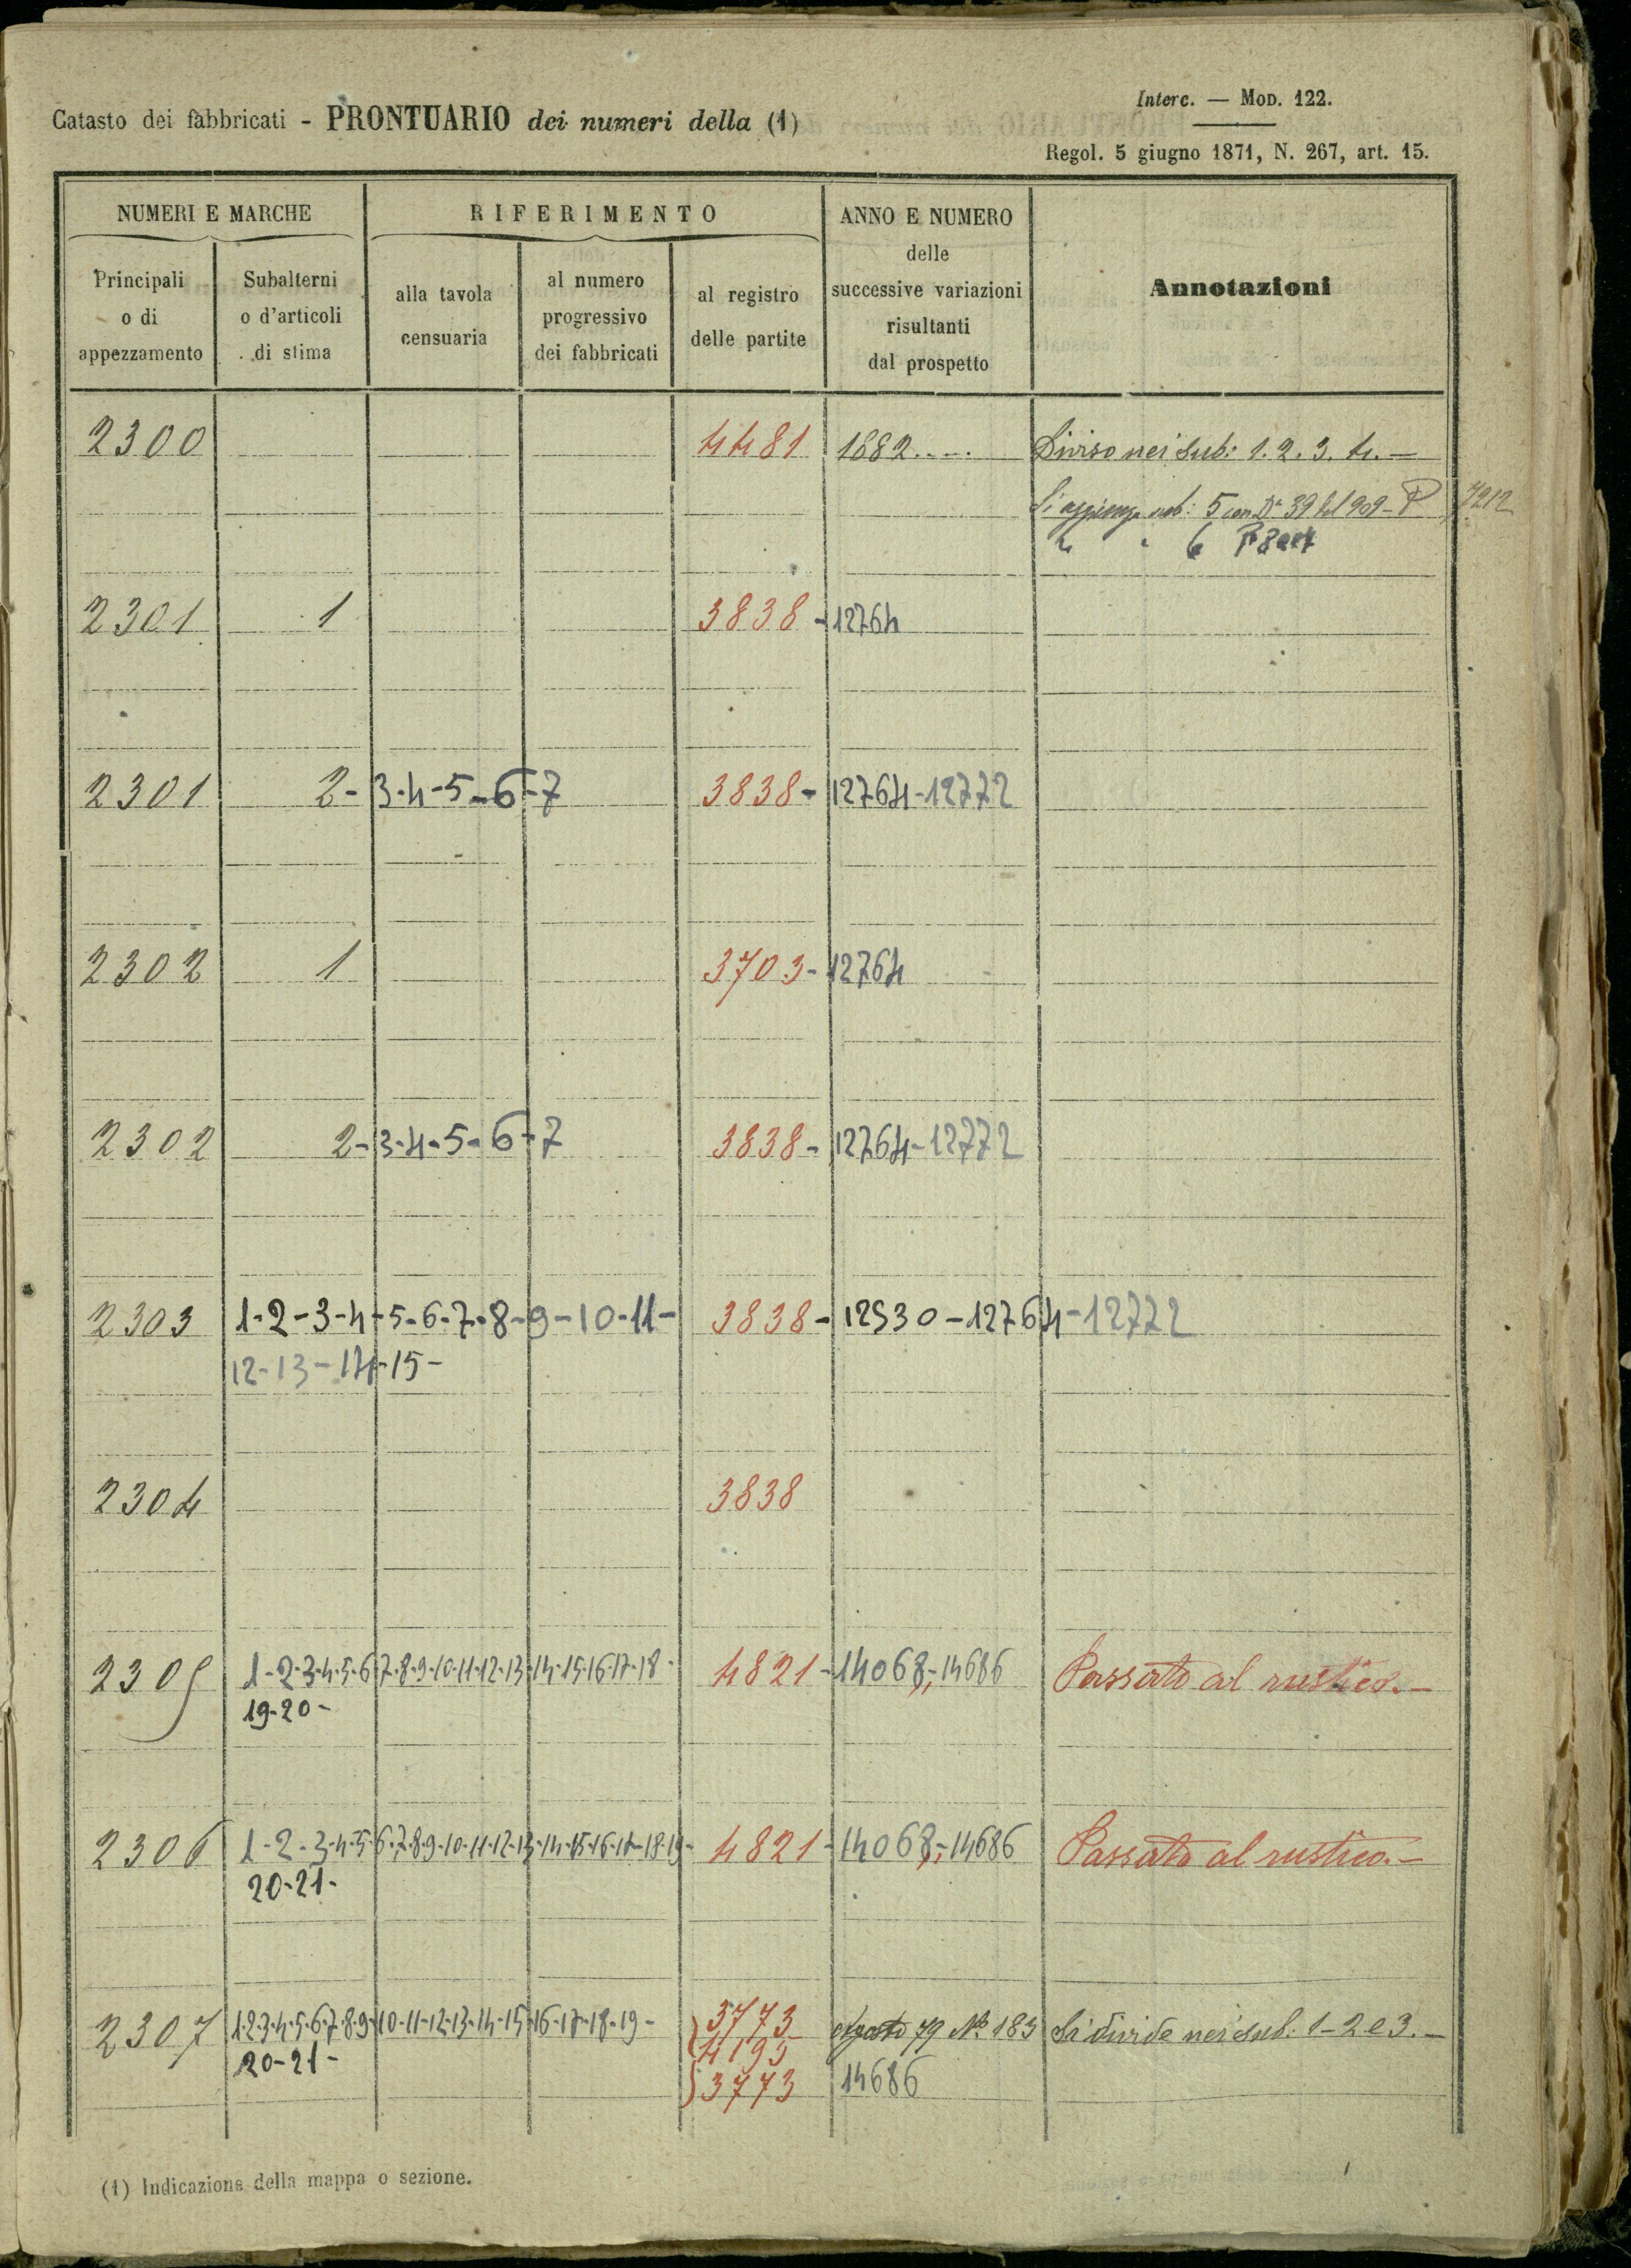 Catasto dei fabbricati - PRONTUARIO dei numeri della (1)
Interc. — Mod. 122.
Regol. 5 giugno 1871, N. 267, art. 15.
NUMERI E MARCHE
RIFERIMENTO
ANNO E NUMERO
delle
successive variazioni
risultanti
dal prospetto
Annotazioni
Principali
o di
appezzamento
Subalterni
o d'articoli
di stima
alla tavola
censuaria
al numero
progressivo
dei fabbricati
al registro
delle partite
2300 4481 1882.... Diviso nei sub: 1. 2. 3. 4. —
Si aggiunge sub: 5 con Da 39 del 909 - P 7212
6
2301 1 3838 - 12764
2301 2-3-4-5-6-7 3838 - 12764-12772
2302 1 3703 - 12764
2302 2-3-4-5-6-7 3838 - 12764-12772
2303 1-2-3-4-5-6-7-8-9-10-11- 3838 - 12530-12764-12772
12-13-14-15-
2304 3838
2305 1-2-3-4-5-6-7-8-9-10-11-12-13-14-15-16-17-18- 4821 - 14068;-14686 Passato al rustico. —
19-20-
2306 1-2-3-4-5-6-7-8-9-10-11-12-13-14-15-16-17-18-19- 4821 - 14068;-14686 Passato al rustico. —
20-21-
2307 1-2-3-4-5-6-7-8-9-10-11-12-13-14-15-16-17-18-19- 3773 79 No. 183 Si divide nei sub: 1-2 e 3. —
20-21- 4195
3773 14686
(1) Indicazione della mappa o sezione.